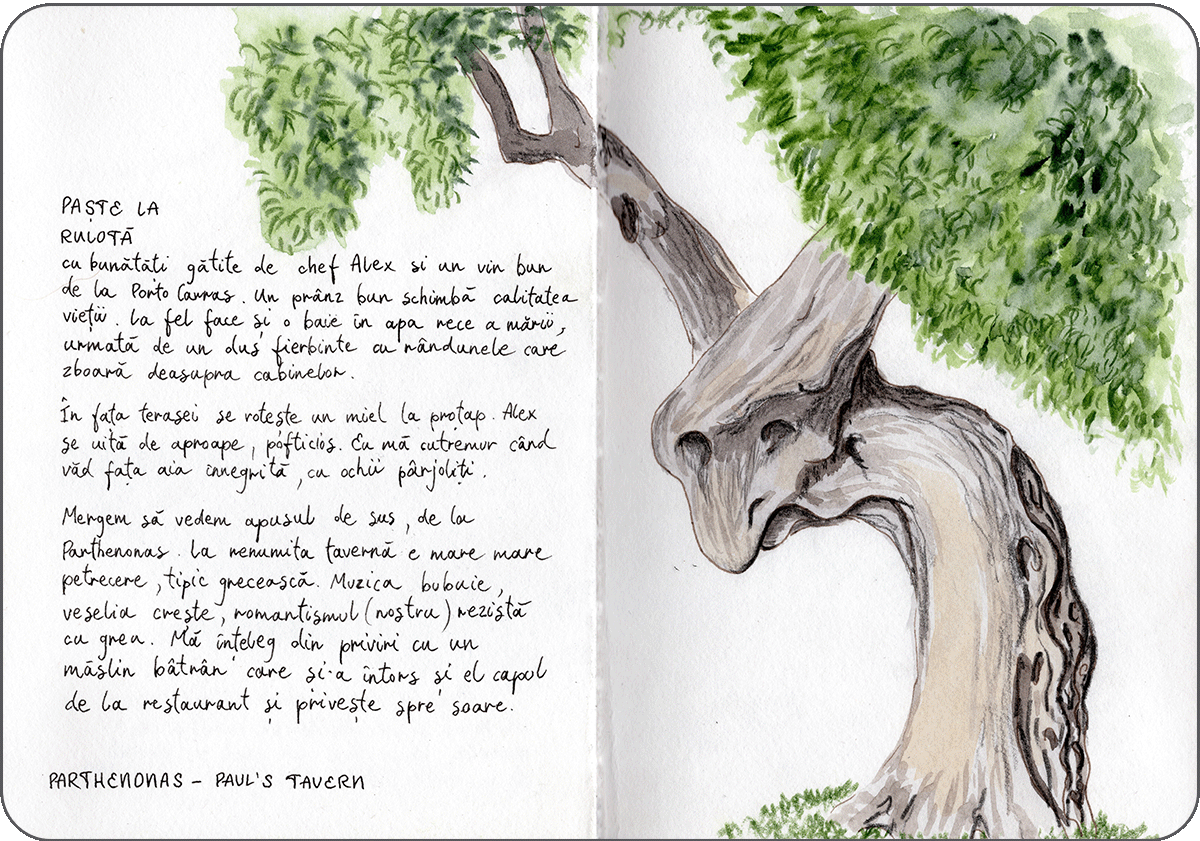 PAȘTE LA
RULOTĂ
cu bunătăti gătite de chef Alex si un vin bun
de la Porto Carras. Un prânz bun schimbă calitatea
vieții. La fel face și o baie în apa rece a mării,
urmată de un duș fierbinte cu rândunele care
zboară deasupra cabinelor.
În fața terasei se rotește un miel la proțap. Alex
se uită de aproape, pofticios. Eu mă cutremur când
văd fața aia înnegrită, cu ochii pârjoliți.
Mergem să vedem apusul de sus, de la
Parthenonas. La renumita tavernă e mare mare
petrecere, tipic grecească. Muzica bubuie,
veselia crește, romantismul (nostru) rezistă
cu greu. Mă înțeleg din priviri cu un
măslin bâtrân care și-a întors și el capul
de la restaurant și privește spre soare.
PARTHENONAS - PAUL'S TAVERN